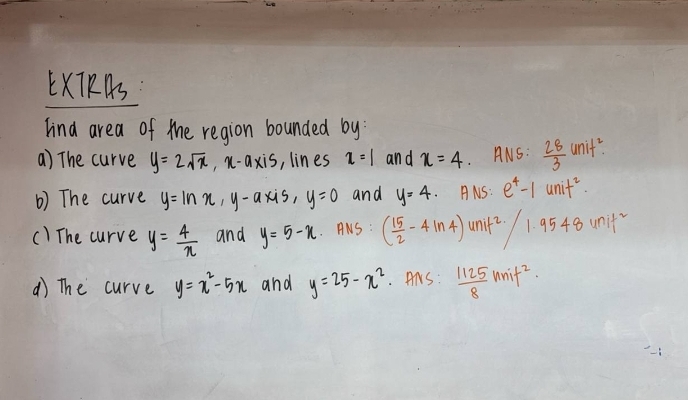 EXTRAs :
Find area of the region bounded by:
a) The curve y = 2√x, x-axis, lines x=1 and x = 4. ANS: 28/3 unit².
b) The curve y=ln x, y-axis, y=0 and y=4. ANS: e⁴-1 unit².
c) The curve y = 4/x and y=5-x. ANS: (15/2 - 4 ln 4) unit² / 1.9548 unit²
d) The curve y=x²-5x and y=25-x². ANS: 1125/8 unit².